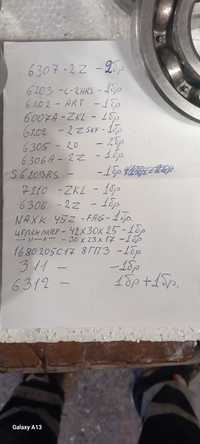 6307-2Z-2бр
6203-C-2HRS-1бр
6202-ART-1бр
6007A-ZKL-1бр
6202-2Z SKF-1бр
6305-20-1бр
6306A-2Z-1бр
-1бр
7210-ZKL-1бр
6308-2Z-1бр
NAXK 45Z-FAG-1бр.
42x30x25-1бр
30x23x17-1бр
1680205C17 8ГПЗ-1бр
311--1бр
6312-1бр+1бр.
Galaxy A13